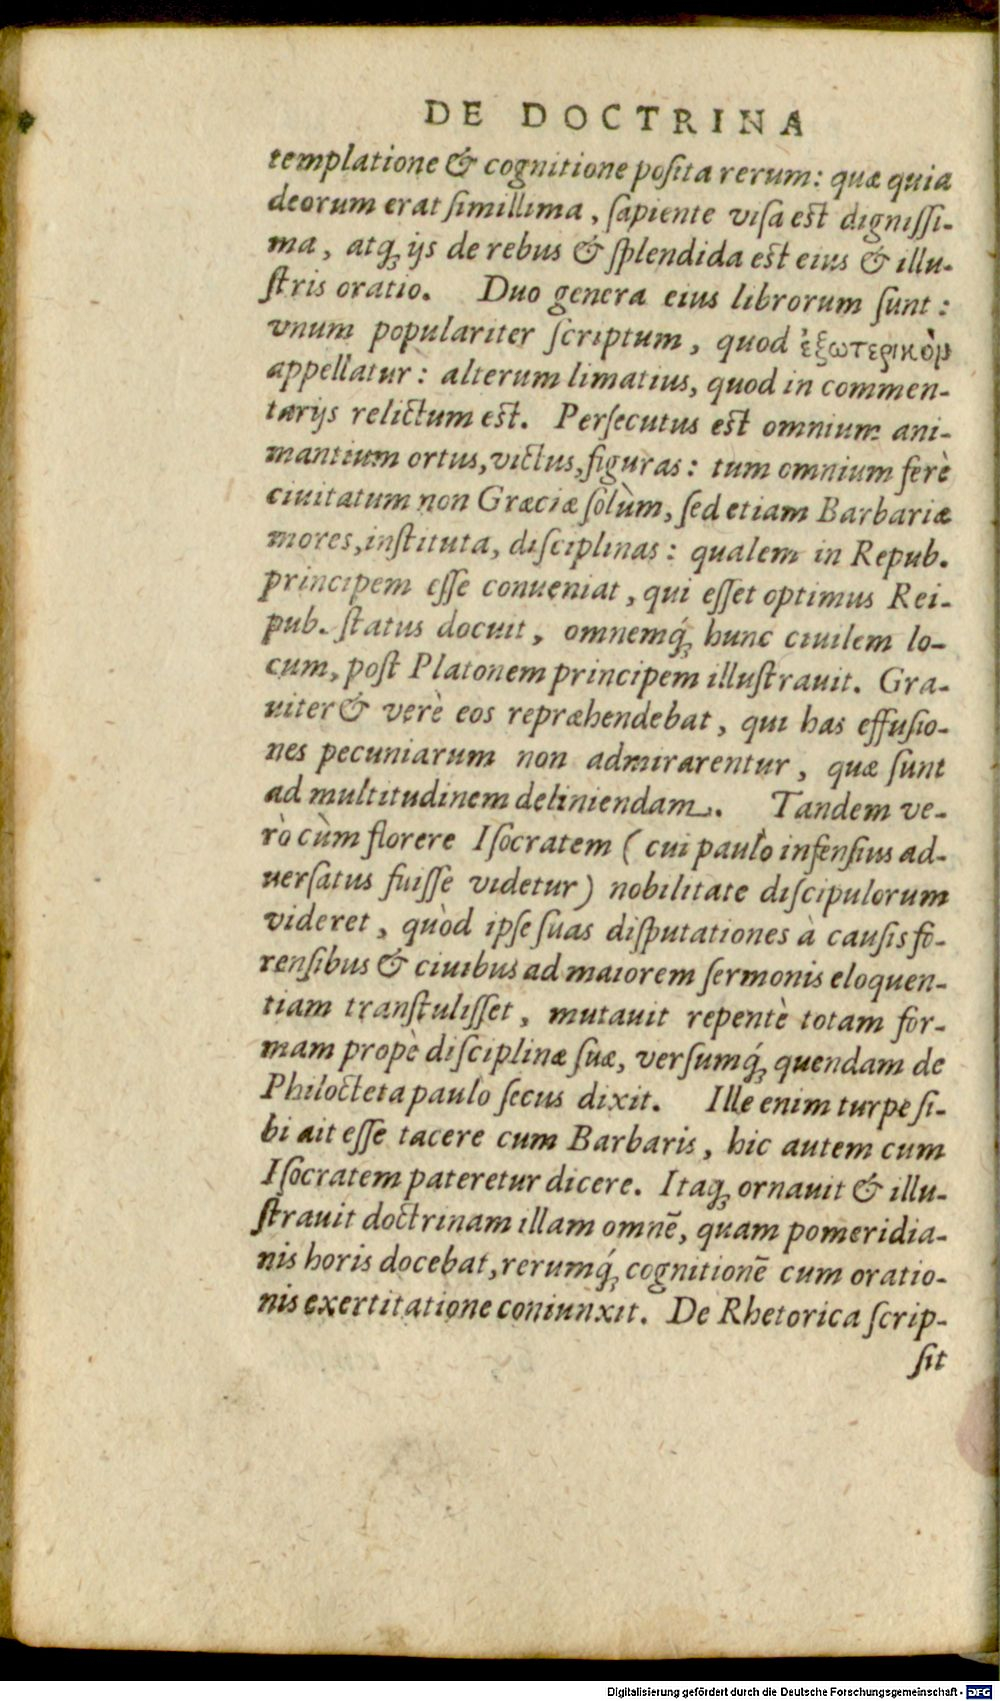 DE DOCTRINA
templatione & cognitione posita rerum: quæ quia
deorum erat simillima, sapiente visa est dignissi-
ma, atq; ijs de rebus & splendida est eius & illu-
stris oratio. Duo genera eius librorum sunt:
vnum populariter scriptum, quod ἐξωτερικὸν
appellatur: alterum limatius, quod in commen-
tarijs relictum est. Persecutus est omnium ani-
mantium ortus, victus, figuras: tum omnium ferè
ciuitatum non Græciæ sòlùm, sed etiam Barbariæ
mores, instituta, disciplinas: qualem in Repub.
principem esse conueniat, qui esset optimus Rei-
pub. status docuit, omnemq́; hunc ciuilem lo-
cum, post Platonem principem illustrauit. Gra-
uiter & verè eos repræhendebat, qui has effusio-
nes pecuniarum non admirarentur, quæ sunt
ad multitudinem deliniendam. Tandem ve-
rò cùm florere Isocratem (cui paulò infensius ad-
uersatus fuisse videtur) nobilitate discipulorum
videret, quòd ipse suas disputationes à causis fo-
rensibus & ciuibus ad maiorem sermonis eloquen-
tiam transtulisset, mutauit repentè totam for-
mam propè disciplinæ suæ, versumq́; quendam de
Philocteta paulo secus dixit. Ille enim turpe si-
bi ait esse tacere cum Barbaris, hic autem cum
Isocratem pateretur dicere. Itaq; ornauit & illu-
strauit doctrinam illam omnē, quam pomeridia-
nis horis docebat, rerumq́; cognitionē cum oratio-
nis exertitatione coniunxit. De Rhetorica scrip-
sit
Digitalisierung gefördert durch die Deutsche Forschungsgemeinschaft - DFG